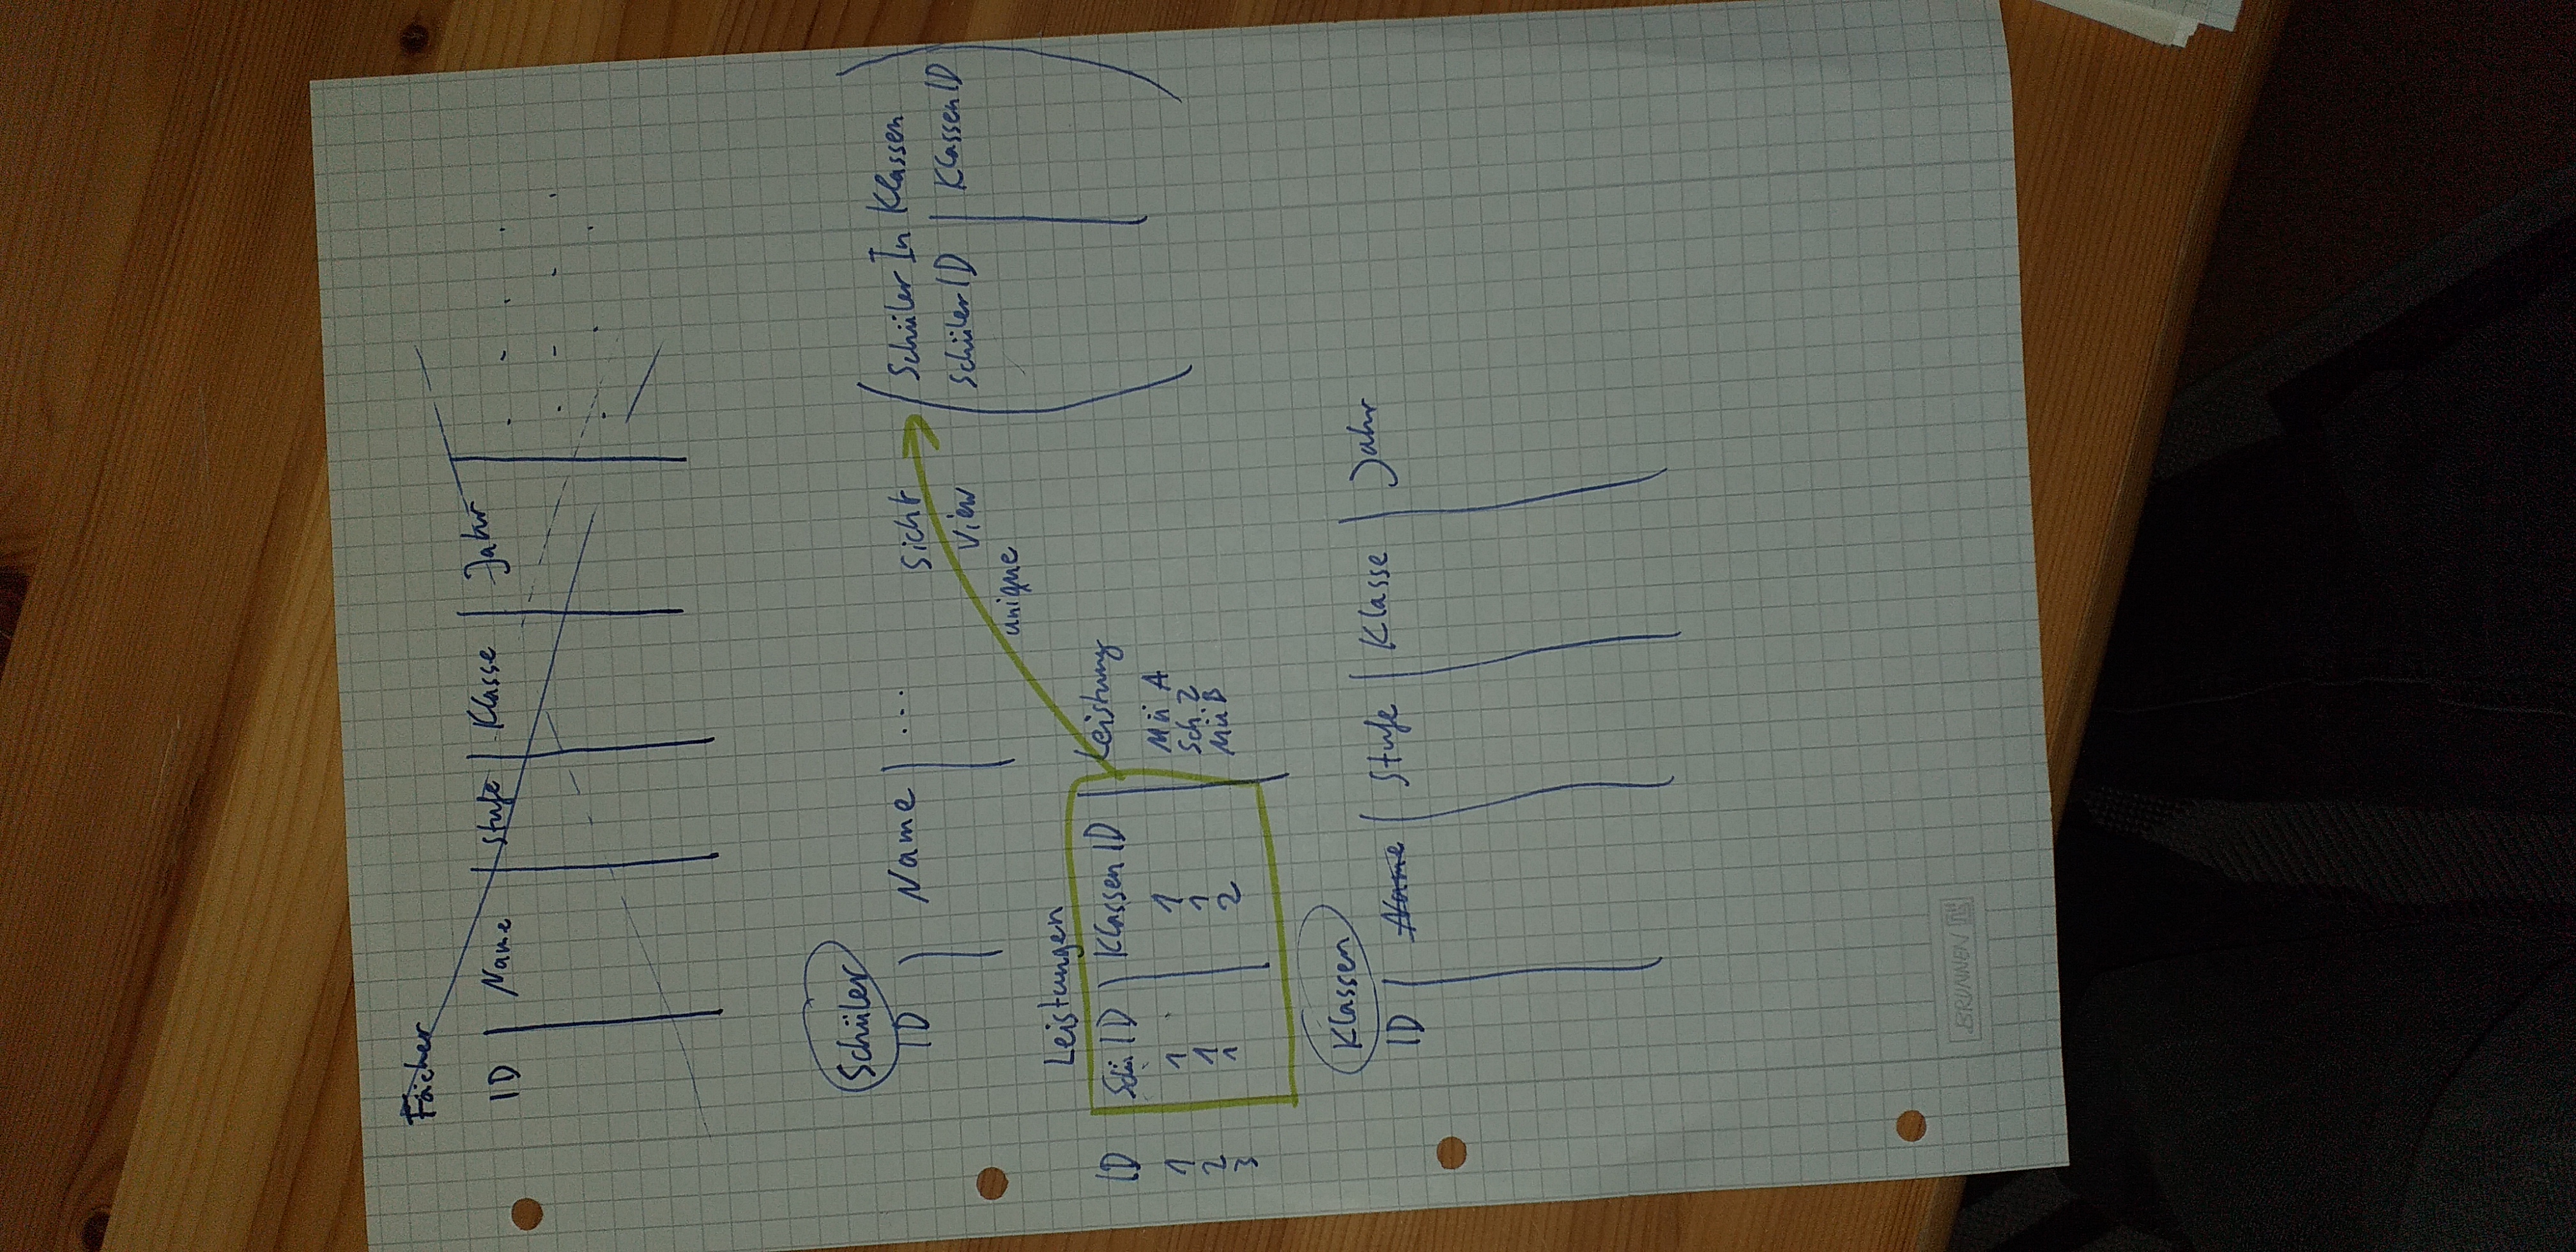 Fächer
ID Name Stufe Klasse Jahr
Schüler
ID Name ...
Sicht
View
unique
Schüler In Klassen
Schüler ID Klassen ID
Leistungen
ID Schü ID Klassen ID Leistung
1 1 1 Mü A
2 1 1 Sch 2
3 1 2 Mü B
Klassen
ID Name Stufe Klasse Jahr
BRUNNEN